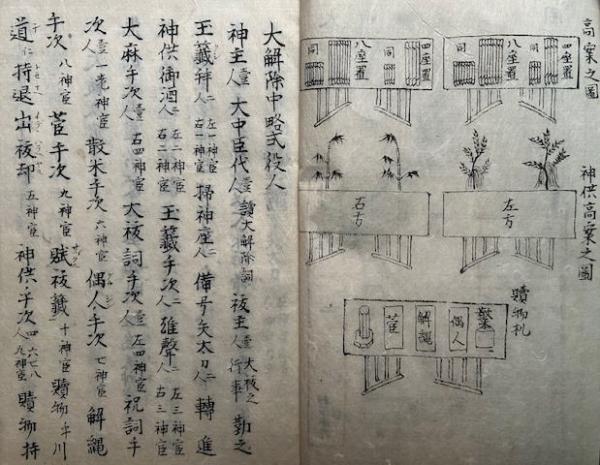 高案之圖
四座置
同
八座置
同
四座置
同
八座置
同
神供高案之圖
左方
右方
贖物札
散米
偶人
解縄
菅
大解除中略式役人
神主人壹 大中臣代人壹 讀大解除詞 祓主人壹 大祓之行事 勤之
玉籤稱人二 左一神宦 右一神宦 掃神座人二 備弓矢太刀人二 轉進
神供御酒人二 左二神宦 右二神宦 玉籤手次人二 雄聲人二 左三神宦 右三神宦
大麻手次人壹 右四神宦 大祓詞手次人壹 左四神宦 祝詞手
次人壹 一老神宦 散米手次 六神宦 偶人手次 七神宦 解縄
手次 八神宦 菅手次 九神宦 賦祓籤 十神宦 贖物手川
道仁持退出祓却 五神宦 神供手次人四 六七八九神宦 贖物持